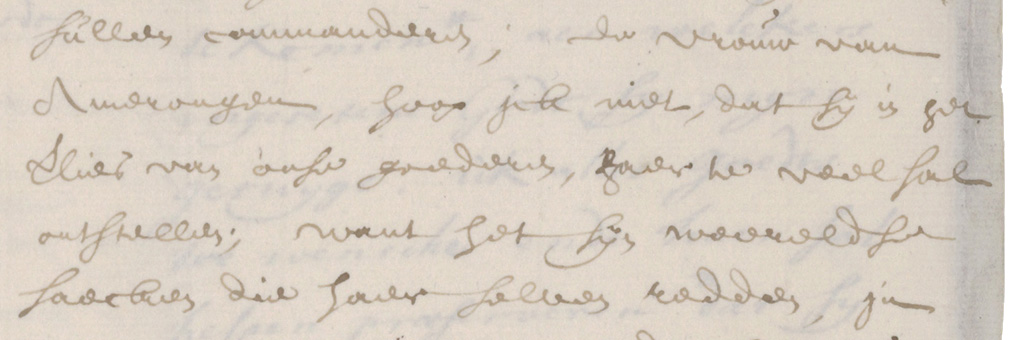 sullen commanderen; de vrouw van
Amerongen, hoop jck niet, dat sij in het
vlies van onse goederen, haer te veel sal
ontstellen; want het sijn weereldse
saecken die haer selven redden, in